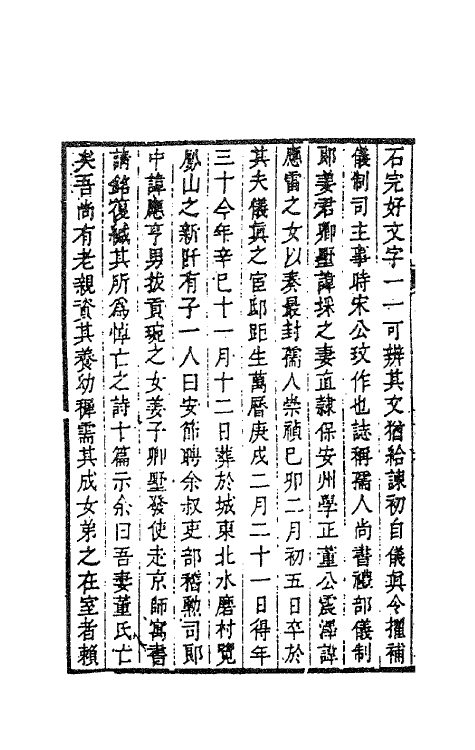 石完好文字一一可辨其文猶給諫初自儀眞令擢補
儀制司主事時宋公玫作也誌稱孺人尚書禮部儀制
郞姜君卿墅諱採之妻直隷保安州學正董公震澤諱
應雷之女以奏最封孺人崇禎己卯二月初五日卒於
其夫儀眞之宦邸距生萬曆庚戌二月二十一日得年
三十今年辛巳十一月十二日葬於城東北水磨村覽
鳳山之新阡有子一人曰安節聘余叔吏部稽勳司郞
中諱應亨男拔貢琬之女姜子卿墅發使走京師寓書
請銘復緘其所爲悼亡之詩十篇示余曰吾妻董氏亡
矣吾尚有老親資其養幼穉需其成女弟之在室者賴